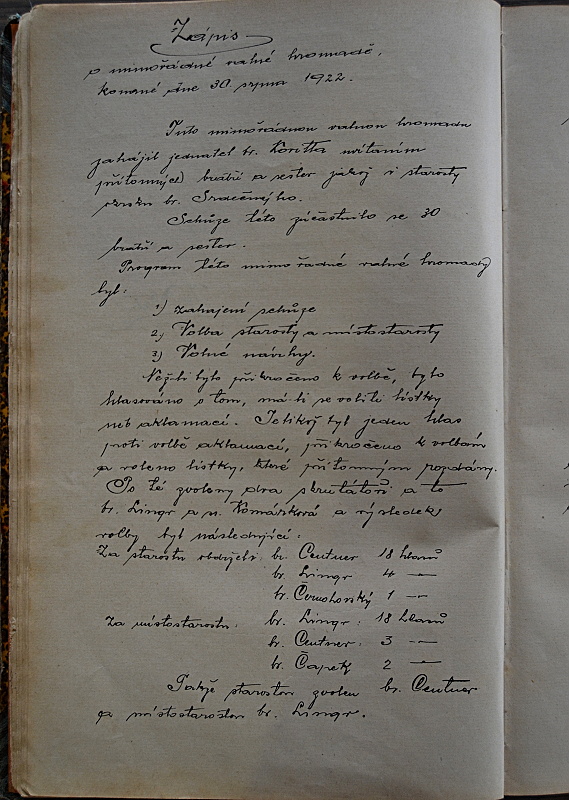 Zápis
o mimořádné valné hromadě,
konané dne 30. srpna 1922.
Tuto mimořádnou valnou hromadu
zahájil jednatel br. Koritta uvítáním
přítomných bratří a sester jakož i starosty
okrsku br. Srdečného.
Schůze této zúčastnilo se 30
bratří a sester.
Program této mimořádné valné hromady
byl:
1) zahajení schůze
2) Volba starosty a místostarosty
3) Volné návrhy.
Nežli bylo přikročeno k volbě, bylo
hlasováno o tom, má-li se voliti lístky
neb aklamací. Jelikož byl jeden hlas
proti volbě aklamací, přikročeno k volbám
a voleno lístky, které přítomným rozdány.
Po té zvoleny dva skrutátoři a to
br. Lingr a s. Komárková a výsledek
volby byl následující:
Za starostu obdrželi: br. Centner 18 hlasů
br. Lingr 4 —
br. Černohorský 1 —
Za místostarostu: br. Lingr: 18 hlasů
br. Centner: 3 —
br. Čapek 2 —
Takže starostou zvolen br. Centner
a místostarostou br. Lingr.